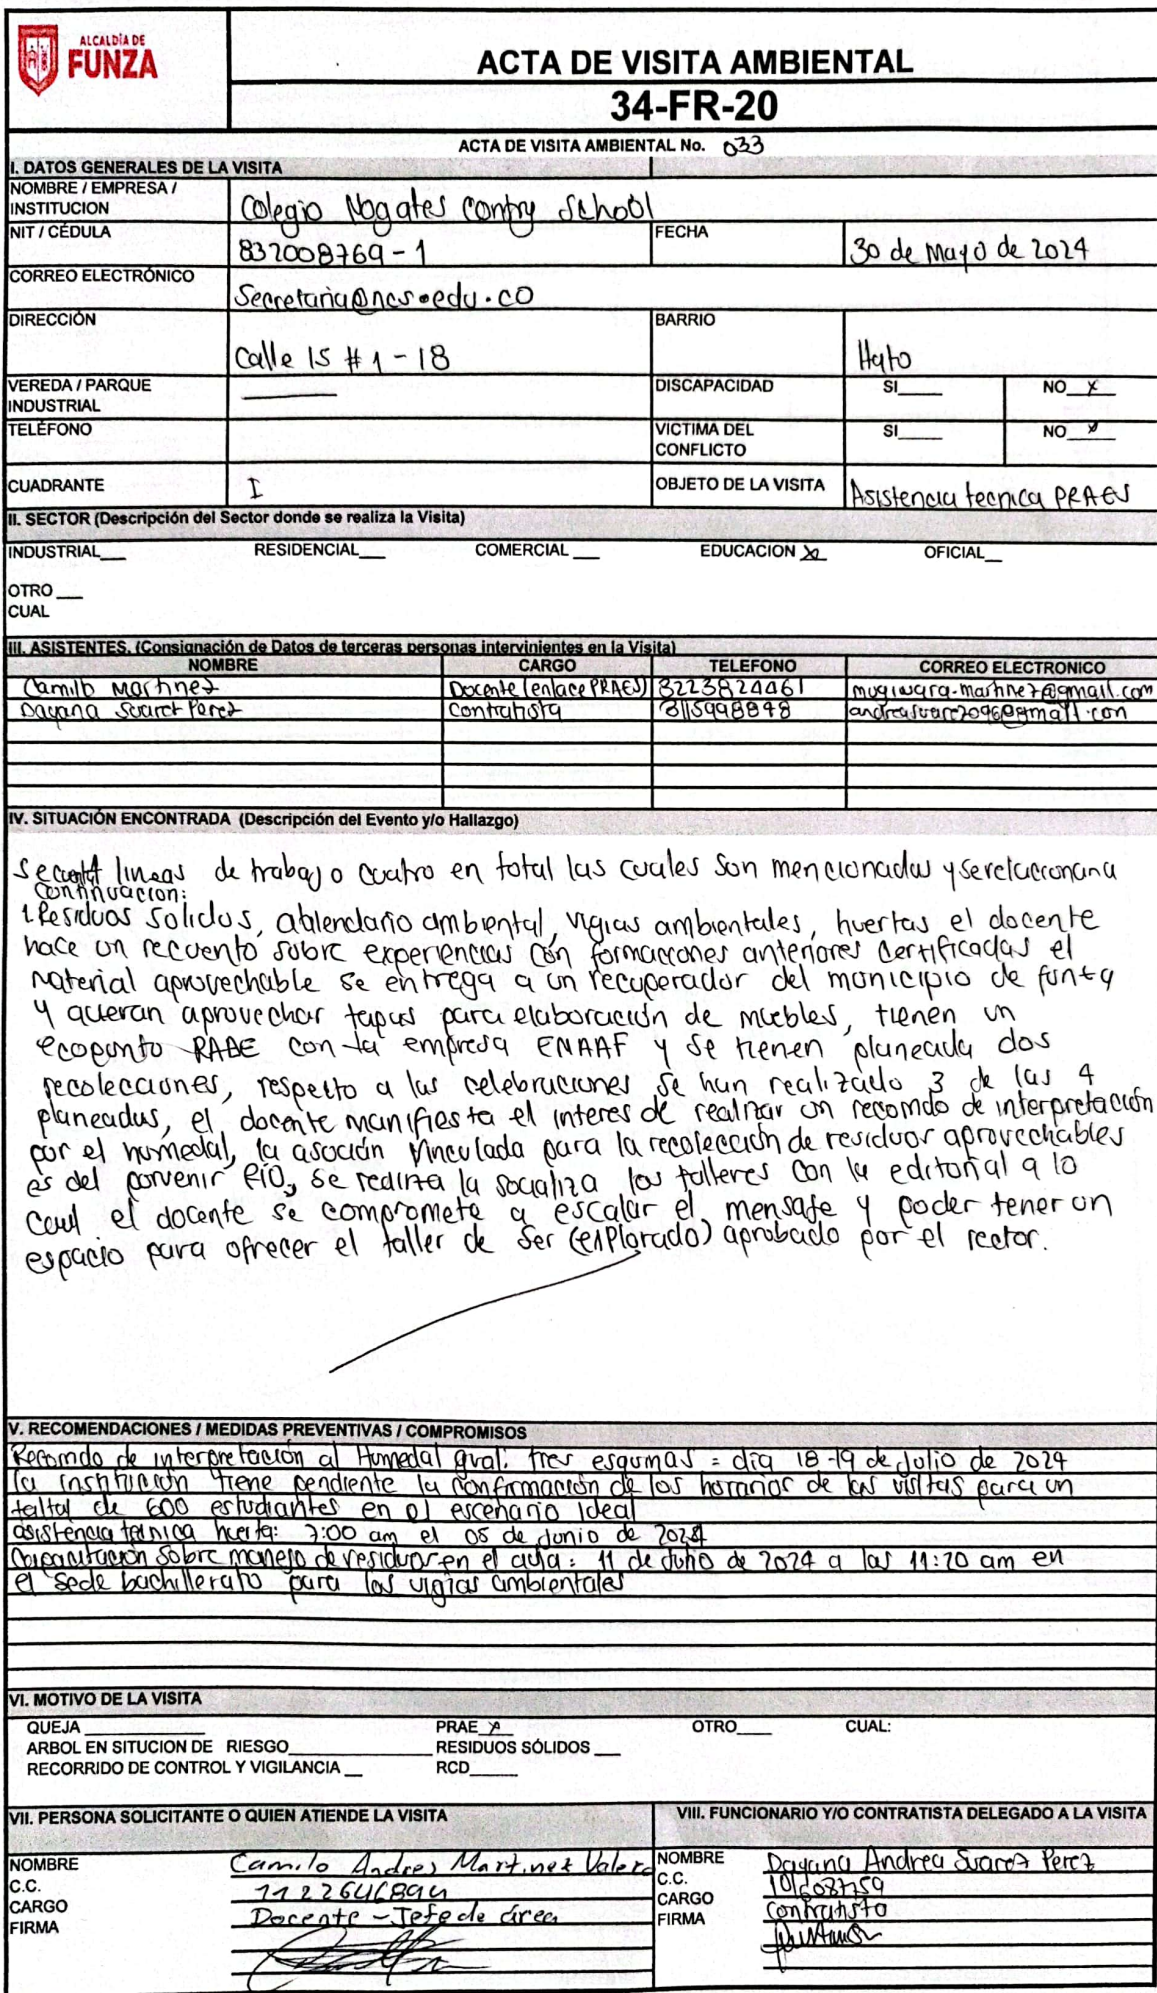 ALCALDÍA DE
FUNZA
ACTA DE VISITA AMBIENTAL
34-FR-20
ACTA DE VISITA AMBIENTAL No. 033
I. DATOS GENERALES DE LA VISITA
NOMBRE / EMPRESA / INSTITUCION Colegio Nogales Contry School
NIT / CÉDULA 832008769-1 FECHA 30 de Mayo de 2024
CORREO ELECTRÓNICO Secretaria@ncs.edu.co
DIRECCIÓN Calle 15 # 1-18 BARRIO Hato
VEREDA / PARQUE INDUSTRIAL ——— DISCAPACIDAD SI____ NO_x_
TELÉFONO VICTIMA DEL CONFLICTO SI____ NO_x_
CUADRANTE I OBJETO DE LA VISITA Asistencia tecnica PRAES
II. SECTOR (Descripción del Sector donde se realiza la Visita)
INDUSTRIAL__ RESIDENCIAL__ COMERCIAL __ EDUCACION x OFICIAL__
OTRO __
CUAL
III. ASISTENTES. (Consignación de Datos de terceras personas intervinientes en la Visita)
NOMBRE CARGO TELEFONO CORREO ELECTRONICO
Camilo Martinez Docente (enlace PRAES) 3223824461 mugiwara.martinez@gmail.com
Dayana Suarez Perez Contratista 3115998848 andreasuarez096@gmail.com
IV. SITUACIÓN ENCONTRADA (Descripción del Evento y/o Hallazgo)
Se lineas de trabajo cuatro en total las cuales son mencionadas y se relacionan a
continuacion:
1. Residuos solidos, ambiental, vigias ambientales, huertas el docente
hace un recuento sobre experiencias con formaciones anteriores certificadas el
material aprovechable se entrega a un recuperador del municipio de funza
y aprovechar tapas para elaboración de muebles, tienen un
ecopunto RAEE con la empresa ENAAF y se tienen planeada dos
recolecciones, respecto a las celebraciones se han realizado 3 de las 4
planeadas, el docente manifiesta el interes de realizar un recorrido de interpretación
por el humedal, la asoción vinculada para la recolección de residuos aprovechables
es del porvenir RIO, se realiza la socializa los talleres con la editorial a lo
caul el docente se compromete a escalar el mensaje y poder tener un
espacio para ofrecer el taller de Ser (explorado) aprobado por el rector.
V. RECOMENDACIONES / MEDIDAS PREVENTIVAS / COMPROMISOS
Recorrido de interpretación al Humedal gual: tres esquinas = día 18-19 de Julio de 2024
la institución tiene pendiente la confirmación de los horarios de las visitas para un
taltal de 600 estudiantes en el escenario ideal
asistencia técnica huerta: 7:00 am el 05 de Junio de 2024
Capacitación sobre manejo de residuos en el aula: 11 de Julio de 2024 a las 11:20 am en
el sede bachillerato para los vigias ambientales
VI. MOTIVO DE LA VISITA
QUEJA ____ PRAE x OTRO____ CUAL:
ARBOL EN SITUCION DE RIESGO____ RESIDUOS SÓLIDOS ___
RECORRIDO DE CONTROL Y VIGILANCIA __ RCD____
VII. PERSONA SOLICITANTE O QUIEN ATIENDE LA VISITA VIII. FUNCIONARIO Y/O CONTRATISTA DELEGADO A LA VISITA
NOMBRE Camilo Andres Martinez Valero NOMBRE Dayana Andrea Suarez Perez
C.C. 1122646894 C.C.
CARGO Docente - Jefe de área CARGO Contratista
FIRMA FIRMA